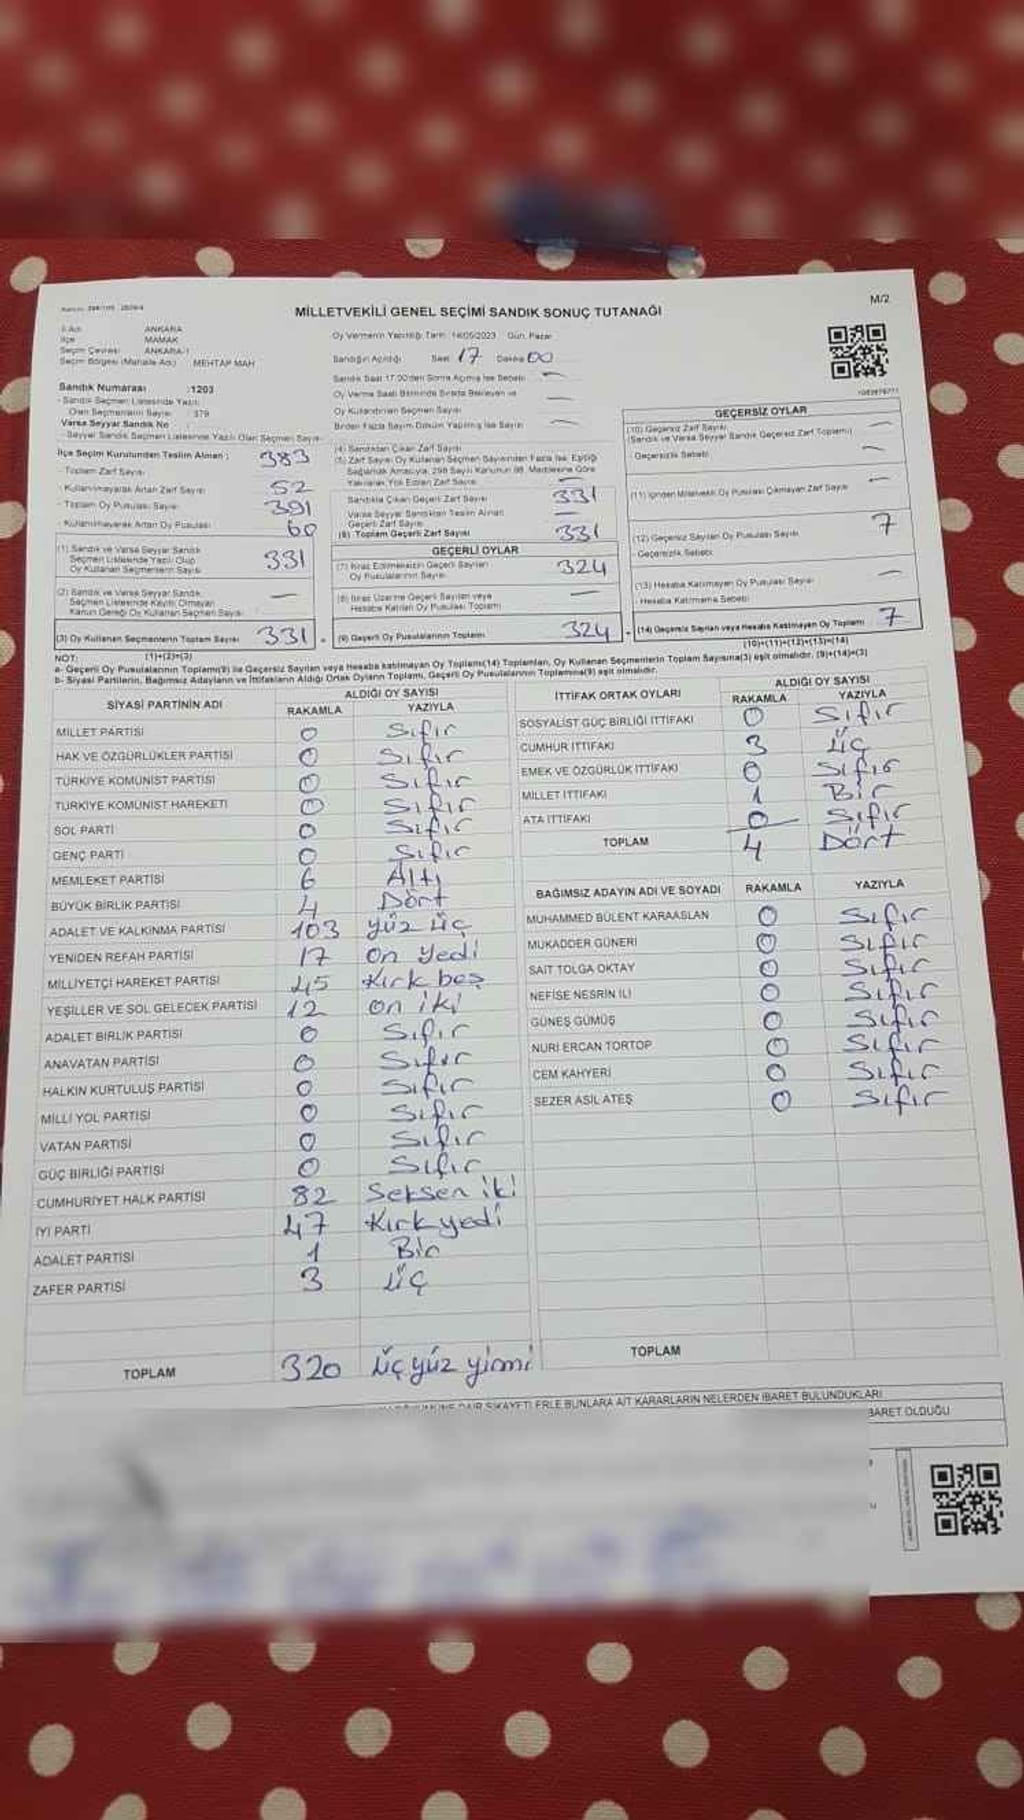 MİLLETVEKİLİ GENEL SEÇİMİ SANDIK SONUÇ TUTANAĞI
M/2
İl Adı ANKARA
İlçe MAMAK
Seçim Çevresi ANKARA-1
Seçim Bölgesi (Mahalle Adı) MEHTAP MAH
Oy Vermenin Yapıldığı Tarih: 14/05/2023 Gün: Pazar
Sandığın Açıldığı Saat 17 Dakika 00
Sandık Saat 17.00'den Sonra Açılmış İse Sebebi —
Oy Verme Saati Bitiminde Sırada Bekleyen ve
Oy Kullandırılan Seçmen Sayısı —
Birden Fazla Sayım Döküm Yapılmış İse Sayısı —
Sandık Numarası :1203
- Sandık Seçmen Listesinde Yazılı
Olan Seçmenlerin Sayısı : 379
Varsa Seyyar Sandık No
- Seyyar Sandık Seçmen Listesinde Yazılı Olan Seçmen Sayısı
İlçe Seçim Kurulundan Teslim Alınan :
- Toplam Zarf Sayısı 383
- Kullanılmayarak Artan Zarf Sayısı 52
- Toplam Oy Pusulası Sayısı 391
- Kullanılmayarak Artan Oy Pusulası 60
(1) Sandık ve Varsa Seyyar Sandık
Seçmen Listesinde Yazılı Olup
Oy Kullanan Seçmenlerin Sayısı 331
(2) Sandık ve Varsa Seyyar Sandık
Seçmen Listesinde Kayıtlı Olmayan
Kanun Gereği Oy Kullanan Seçmen Sayısı —
(3) Oy Kullanan Seçmenlerin Toplam Sayısı 331
(1)+(2)=(3)
(4) Sandıktan Çıkan Zarf Sayısı
(5) Zarf Sayısı Oy Kullanan Seçmen Sayısından Fazla İse, Eşitliği
Sağlamak Amacıyla, 298 Sayılı Kanunun 98. Maddesine Göre
Yakılarak Yok Edilen Zarf Sayısı —
Sandıkta Çıkan Geçerli Zarf Sayısı 331
Varsa Seyyar Sandıktan Teslim Alınan
Geçerli Zarf Sayısı —
(6) Toplam Geçerli Zarf Sayısı 331
GEÇERLİ OYLAR
(7) İtiraz Edilmeksizin Geçerli Sayılan
Oy Pusulalarının Sayısı 324
(8) İtiraz Üzerine Geçerli Sayılan veya
Hesaba Katılan Oy Pusulası Toplamı —
(9) Geçerli Oy Pusulalarının Toplamı 324
GEÇERSİZ OYLAR
(10) Geçersiz Zarf Sayısı
(Sandık ve Varsa Seyyar Sandık Geçersiz Zarf Toplamı) —
- Geçersizlik Sebebi —
(11) İçinden Milletvekili Oy Pusulası Çıkmayan Zarf Sayısı —
(12) Geçersiz Sayılan Oy Pusulası Sayısı 7
- Geçersizlik Sebebi
(13) Hesaba Katılmayan Oy Pusulası Sayısı —
- Hesaba Katılmama Sebebi
(14) Geçersiz Sayılan veya Hesaba Katılmayan Oy Toplamı 7
(10)+(11)+(12)+(13)=(14)
NOT:
a- Geçerli Oy Pusulalarının Toplamı(9) ile Geçersiz Sayılan veya Hesaba katılmayan Oy Toplamı(14) Toplamları, Oy Kullanan Seçmenlerin Toplam Sayısına(3) eşit olmalıdır. (9)+(14)=(3)
b- Siyasi Partilerin, Bağımsız Adayların ve İttifakların Aldığı Ortak Oyların Toplamı, Geçerli Oy Pusulalarının Toplamına(9) eşit olmalıdır.
SİYASİ PARTİNİN ADI ALDIĞI OY SAYISI
RAKAMLA YAZIYLA
MİLLET PARTİSİ 0 Sıfır
HAK VE ÖZGÜRLÜKLER PARTİSİ 0 Sıfır
TÜRKİYE KOMÜNİST PARTİSİ 0 Sıfır
TÜRKİYE KOMÜNİST HAREKETİ 0 Sıfır
SOL PARTİ 0 Sıfır
GENÇ PARTİ 0 Sıfır
MEMLEKET PARTİSİ 6 Altı
BÜYÜK BİRLİK PARTİSİ 4 Dört
ADALET VE KALKINMA PARTİSİ 103 yüz üç
YENİDEN REFAH PARTİSİ 17 On yedi
MİLLİYETÇİ HAREKET PARTİSİ 45 Kırk beş
YEŞİLLER VE SOL GELECEK PARTİSİ 12 on iki
ADALET BİRLİK PARTİSİ 0 Sıfır
ANAVATAN PARTİSİ 0 Sıfır
HALKIN KURTULUŞ PARTİSİ 0 Sıfır
MİLLİ YOL PARTİSİ 0 Sıfır
VATAN PARTİSİ 0 Sıfır
GÜÇ BİRLİĞİ PARTİSİ 0 Sıfır
CUMHURİYET HALK PARTİSİ 82 Seksen iki
İYİ PARTİ 47 Kırk yedi
ADALET PARTİSİ 1 Bir
ZAFER PARTİSİ 3 üç
TOPLAM 320 üç yüz yirmi
İTTİFAK ORTAK OYLARI ALDIĞI OY SAYISI
RAKAMLA YAZIYLA
SOSYALİST GÜÇ BİRLİĞİ İTTİFAKI 0 Sıfır
CUMHUR İTTİFAKI 3 üç
EMEK VE ÖZGÜRLÜK İTTİFAKI 0 Sıfır
MİLLET İTTİFAKI 1 Bir
ATA İTTİFAKI 0 Sıfır
TOPLAM 4 Dört
BAĞIMSIZ ADAYIN ADI VE SOYADI RAKAMLA YAZIYLA
MUHAMMED BÜLENT KARAASLAN 0 Sıfır
MUKADDER GÜNERİ 0 Sıfır
SAİT TOLGA OKTAY 0 Sıfır
NEFİSE NESRİN İLİ 0 Sıfır
GÜNEŞ GÜMÜŞ 0 Sıfır
NURİ ERCAN TORTOP 0 Sıfır
CEM KAHYERİ 0 Sıfır
SEZER ASİL ATEŞ 0 Sıfır
TOPLAM
ŞİKAYETLERLE BUNLARA AİT KARARLARIN NELERDEN İBARET BULUNDUKLARI
BARET OLDUĞU